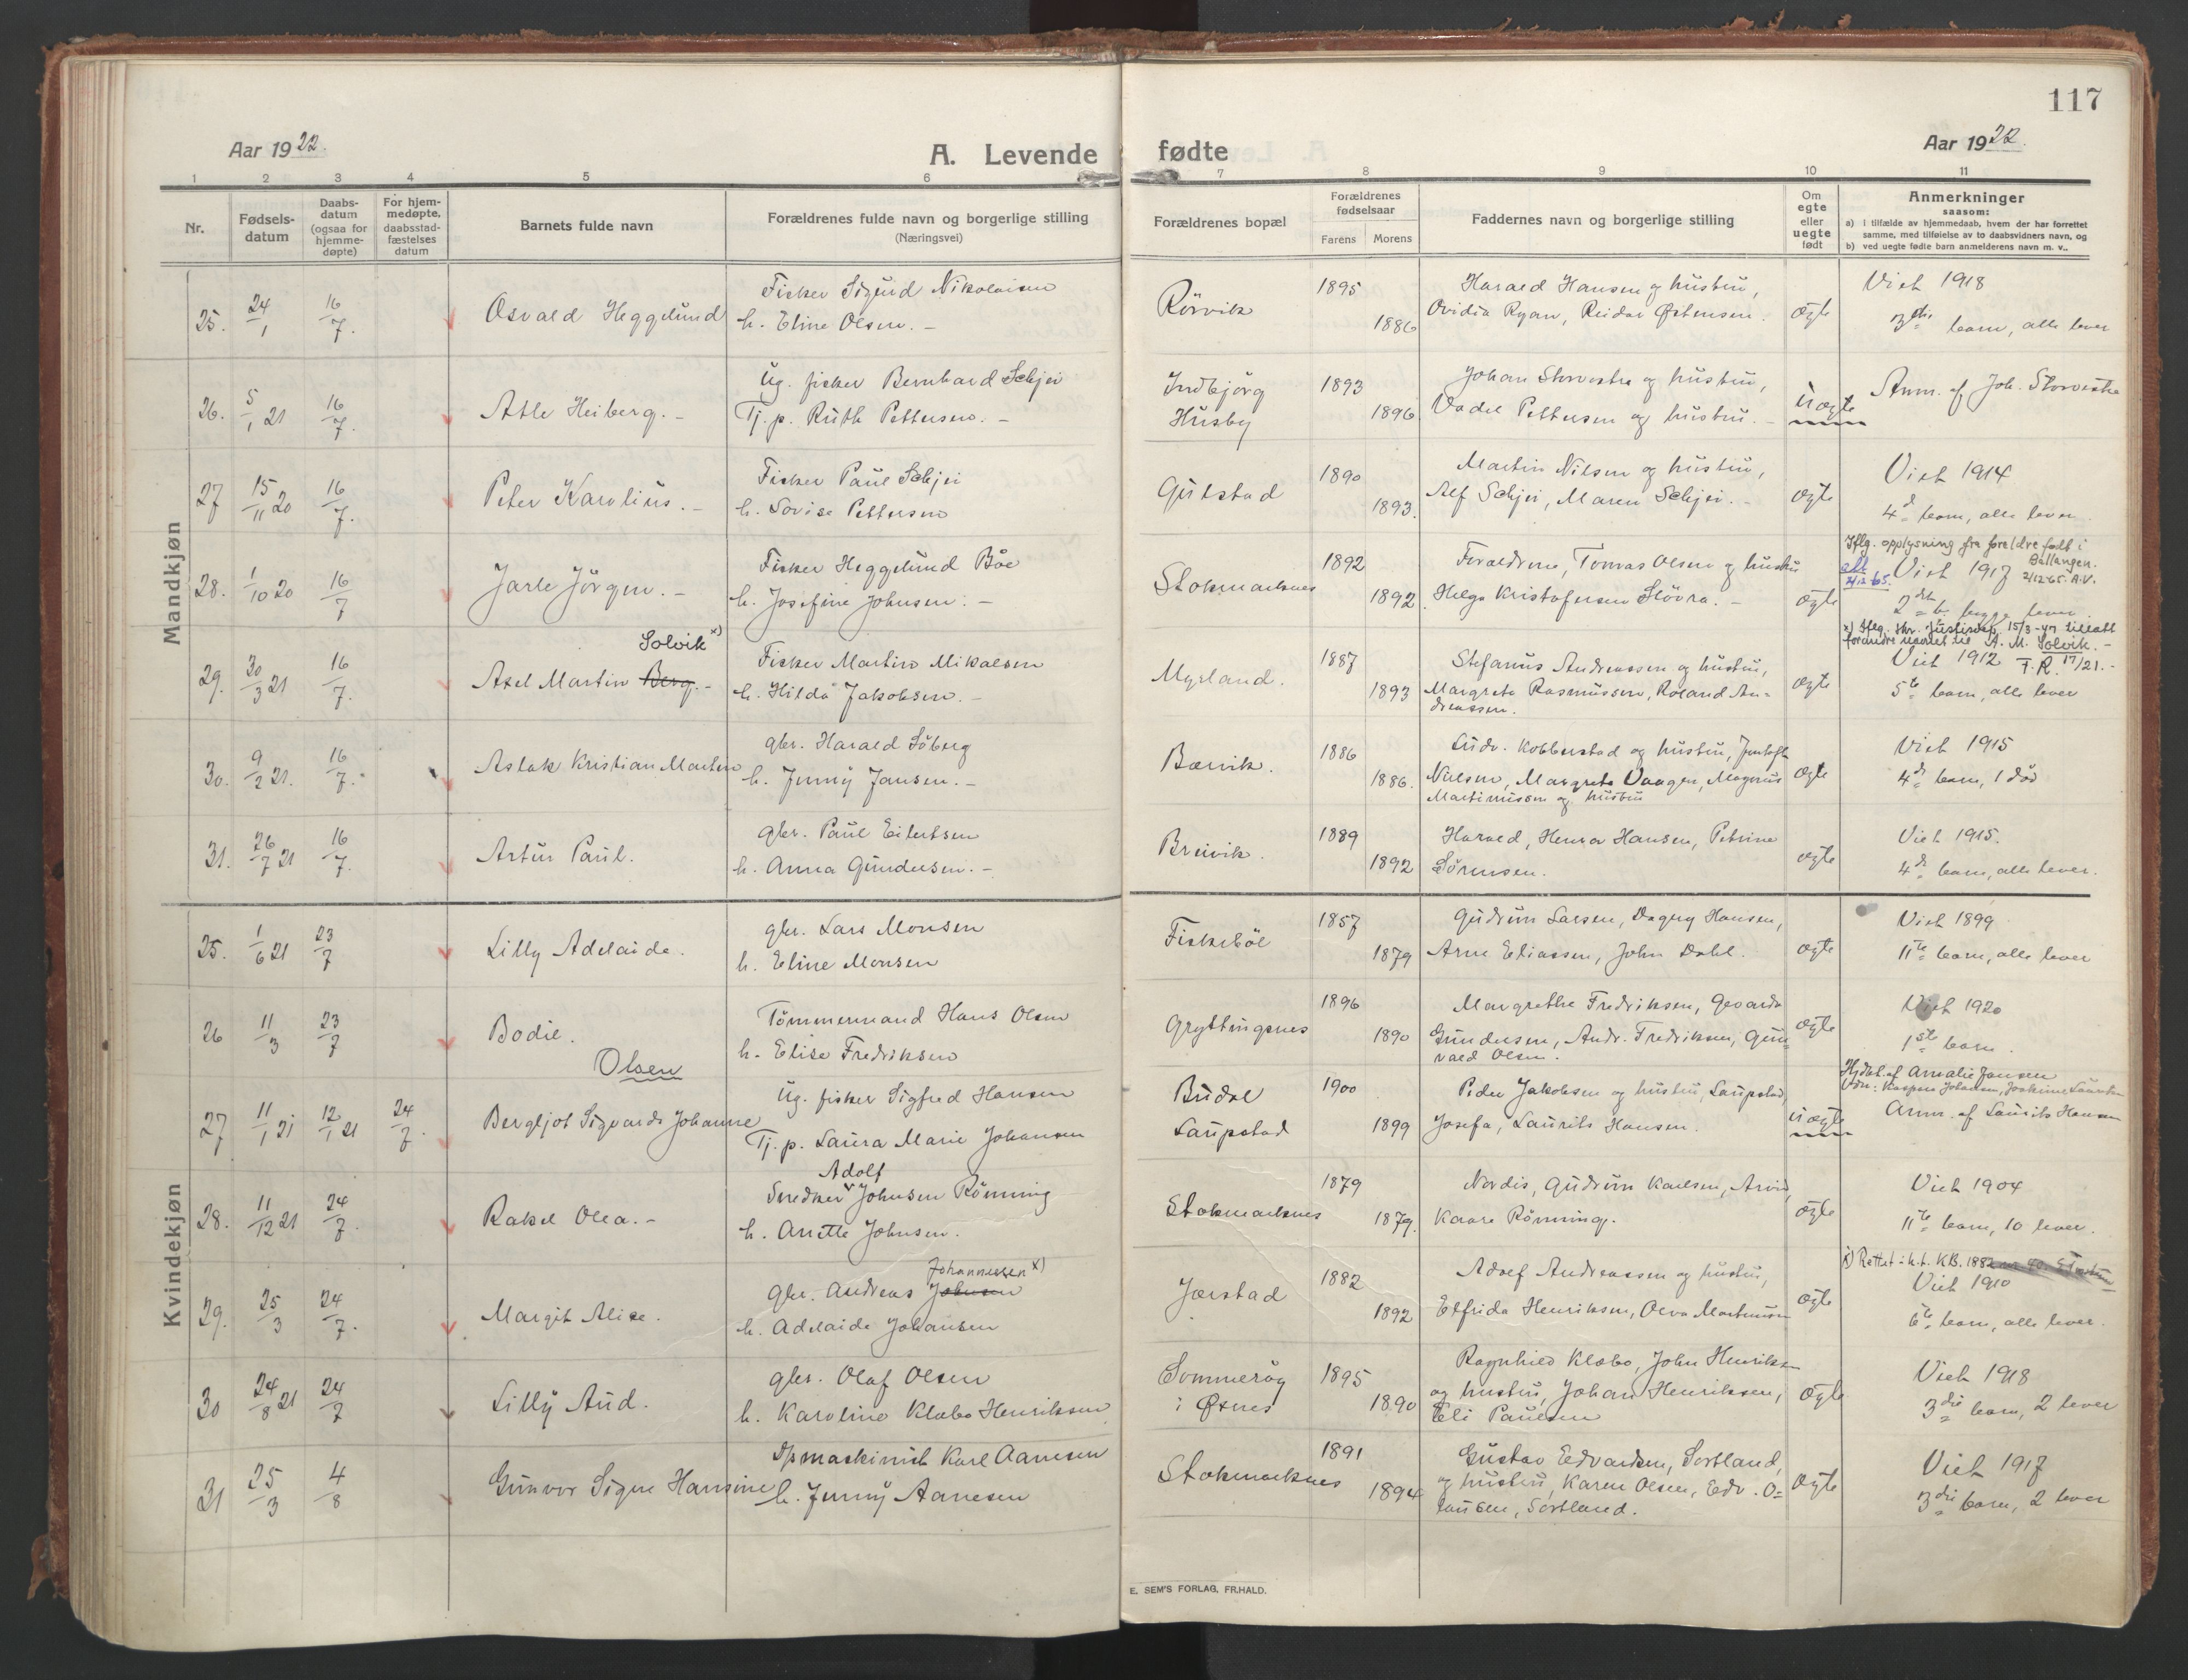 117
Aar 1922.
A. Levende fødte
Aar 1922.
1 2 3 4 5 6 7 8 9 10 11
Nr.
Fødsels-
datum
Daabs-
datum
(ogsaa for
hjemme-
døpte)
For hjem-
medøpte,
daabsstad-
fæstelses
datum
Barnets fulde navn
Forældrenes fulde navn og borgerlige stilling
(Næringsvei)
Forældrenes bopæl
Forældrenes
fødselsaar
Farens Morens
Faddernes navn og borgerlige stilling
Om
egte
eller
uegte
født
Anmerkninger
saasom:
a) i tilfælde av hjemmedaab, hvem der har forrettet
samme, med tilføielse av to daabsvidners navn, og
b) ved uegte fødte barn anmelderens navn m. v..
Mandkjøn
25. 24/1 16/7. Osvald Heggelund
Fisker Sigurd Nikolaisen
h. Eline Olsen. -
Rörvik 1895 1886
Harald Hansen og hustru,
Ovidia Ryan, Reidar Østensen.
ægte
Viet 1918
3die barn, alle lever
26. 5/1 21 16/7. Atle Heiberg. -
Ug. fisker Bernhard Schjei
Tj. p. Ruth Pettersen. -
Indbjörg
Husby
1893 1896
Johan Storvestre og hustru,
Vadel Pettersen og hustru. -
uægte
Anm. af Joh. Storvestre
27 15/11 20 16/7. Peter Karolius. -
Fisker Paul Schjei
h. Lovise Pettersen
Gulstad 1890 1893.
Martin Nilsen og hustru,
Alf Schjei, Maren Schjei. -
ægte
Viet 1914
4d barn, alle lever.
28. 1/10 20 16/7 Jarle Jörgen. -
Fisker Heggelund Böe
h. Josefine Johnsen. -
Stokmarknes 1892 1892
Foraldrene, Tomas Olsen og hustru
Helga Kristofersen Slövra. -
ægte
Iflg. opplysning fra foreldre født i
Ballangen.
2/12 65. A.V.
Viet 1917
2det b. begge lever.
29. 30/3 21 16/7. Axel Martin Berg. -
Solvik x)
Fisker Martin Mikalsen
h. Hilda Jakobsen. -
Myrland. 1887 1893
Stefanus Andreassen og hustru,
Margrete Rasmussen, Roland An-
dreassen.
ægte
x) Iflg. skr. Justisdep. 15/3-47 tillatt
forandre navnet til A. M. Solvik. -
Viet 1912 T.R. 17/21. -
5te barn, alle lever
30. 9/2 21. 16/7. Aslak Kristian Marten
gbr. Harald Söberg
h. Jenny Jansen. -
Bærvik. 1886 1886.
Ludv. Kobberstad og hustru,
Nielsen, Margrete Vaagen, Magnus
Martinussen og hustru
ægte
Viet 1915
4de barn, 1 död
31. 26/7 21 16/7. Artur Paul.
gbr. Paul Eilertsen
h. Anna Gundersen. -
Breivik. 1889 1892
Harald, Henra Hansen, Petrine
Sörensen.
ægte
Viet 1915.
4de barn, alle lever.
Kvindekjøn
25. 1/6 21 23/7 Lilly Adelaide.
gbr. Lars Monsen
h. Eline Monsen
Fiskeböl 1857 1879
Gudrun Larsen, Dagny Hansen,
Arne Eliassen, John Dahl.
ægte
Viet 1899
11te barn, alle lever
26 11/3 23/7 Bodil.
Olsen
Tömmermand Hans Olsen
h. Elise Fredriksen
Gryttingsnes 1896 1890
Margrethe Fredriksen, Gevarda
Gundersen, Andr. Fredriksen, Gun-
vald Olsen.
ægte
Viet 1920
1ste barn.
27 11/1 21 12/1 21 24/7. Bergljot Sigvarda Johanne
Ug. fisker Sigfred Hansen
Tj. p. Laura Marie Johansen
Budal
Laupstad
1900 1899
Peder Jakobsen og hustru, Laupstad,
Josefa, Laurits Hansen.
uægte
Hjdbt. af Amalie Jansen
Vidn: Kaspara Johansen, Joakime
Anm. af Laurits Hansen
28. 11/12 21 24/7. Rakel Olea. -
Adolf
Snedker Johnsen Rönning
h. Anette Johnsen.
Stokmarknes 1879 1879.
Nordis, Gudrun Karlsen, Arvid,
Kaare Rönning.
ægte
Viet 1904
11te barn, 10 lever.
29. 25/3 24/7. Margit Alice.
Johannessen x)
gbr. Andreas Johnsen
h. Adelaide Johansen
Jærstad 1882 1892
Adolf Andreassen og hustru,
Elfrida Henriksen, Olva Martinsen
ægte
x) Rettet i h.t. KB. 1882
Viet 1910
6te barn, alle lever.
30 24/8 21 24/7 Lilly Aud.
gbr. Olaf Olsen
h. Karoline Klæbo Henriksen
Sommeröy
i Øksnes
1895 1890
Ragnhild Klæbo, John Henriksen
og hustru, Johan Henriksen,
Eli Paulsen
ægte
Viet 1918
3die barn, 2 lever
31 25/3 4/8 Gunvor Signe Hansine
Dpmaskinist Karl Aanesen
h. Jenny Aanesen
Stokmarknes 1891 1894
Gustav Edvardsen, Sortland,
og hustru, Karen Olsen, Edv. O-
laussen, Sortland.
ægte
Viet 1917
3die barn, 2 lever
E. SEM'S FORLAG, FR.HALD.